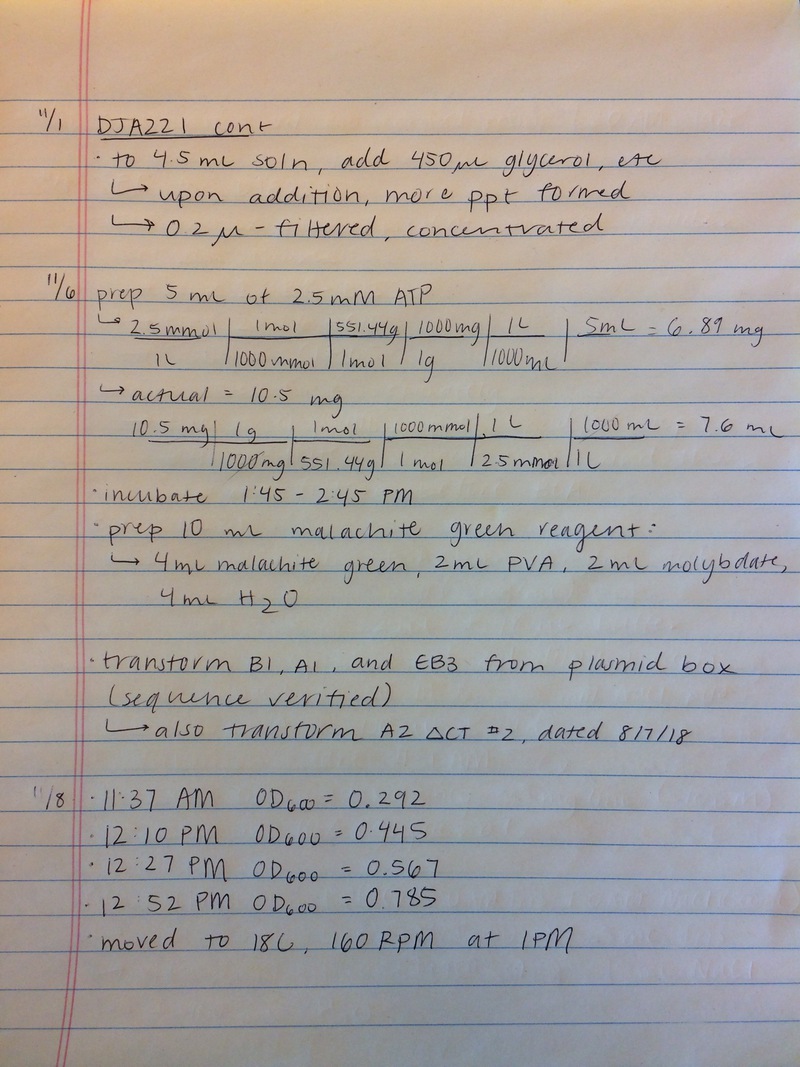 11/1 DJA221 cont
· to 4.5 mL soln, add 450 μL glycerol, etc
↳ upon addition, more ppt formed
↳ 0.2 μ - filtered, concentrated
11/6 prep 5 mL of 2.5 mM ATP
↳ 2.5 mmol | 1 mol | 551.44g | 1000 mg | 1L | 5mL = 6.89 mg
1L | 1000 mmol | 1 mol | 1g | 1000 mL
↳ actual = 10.5 mg
10.5 mg | 1g | 1 mol | 1000 mmol | 1 L | 1000 mL = 7.6 mL
1000 mg | 551.44g | 1 mol | 2.5 mmol | 1L
· incubate 1:45 - 2:45 PM
· prep 10 mL malachite green reagent:
↳ 4mL malachite green, 2mL PVA, 2 mL molybdate,
4 mL H2O
· transform B1, A1, and EB3 from plasmid box
(sequence verified)
↳ also transform A2 ΔCT #2, dated 8/7/18
11/8 · 11:37 AM OD600 = 0.292
· 12:10 PM OD600 = 0.445
· 12:27 PM OD600 = 0.567
· 12:52 PM OD600 = 0.785
· moved to 18C, 160 RPM at 1PM